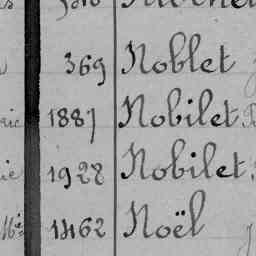 369 Noblet
1887 Nobilet
1928 Nobilet
1462 Noël